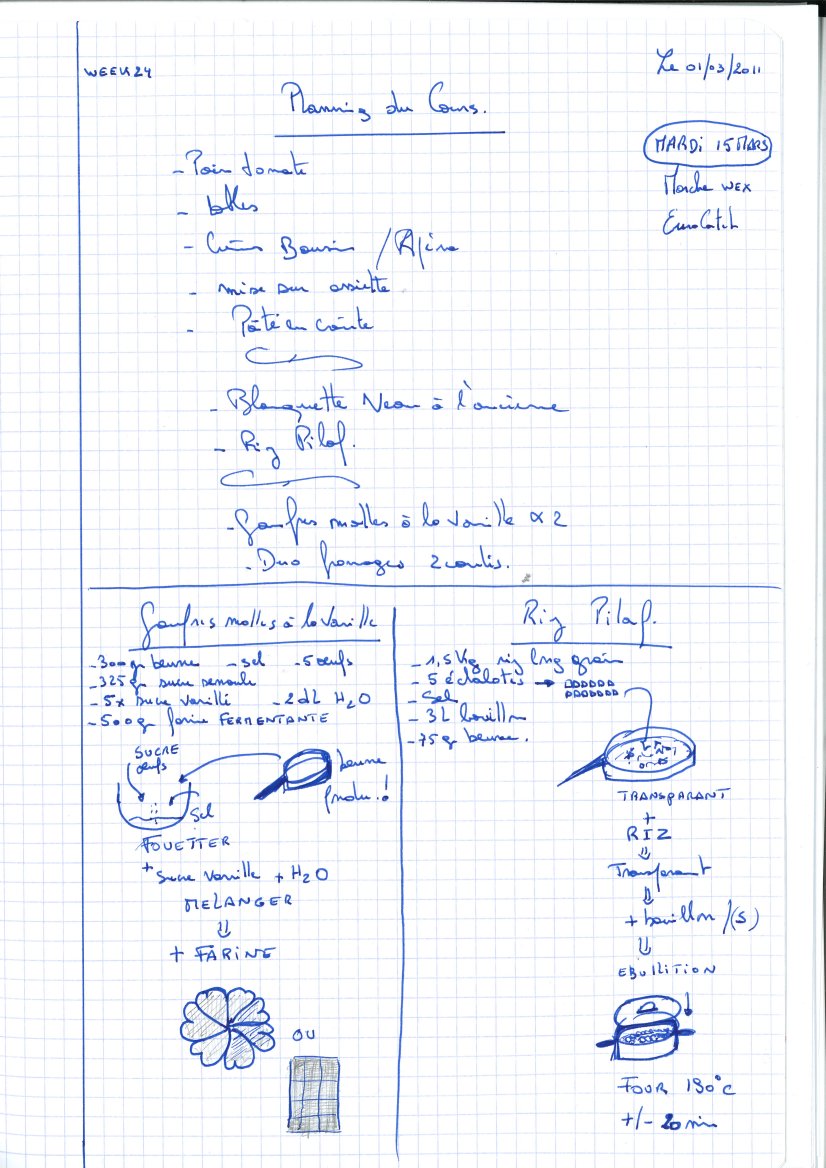 WEEK 24
Le 01/03/2011
Planning du Cours.
MARDI 15 MARS
Marche WEX
EuroCatch
- Pain tomate
-
- Crème Boursin /
- mise sur assiette
- Pâté en croûte
- Blanquette Veau à l'ancienne
- Riz Pilaf.
- Gaufres molles à la vanille x 2
- Duo fromages 2 coulis.
Gaufres molles à la Vanille
- 300 gr beurre - sel - 5 oeufs
- 325 gr sucre semoule
- 5x sucre vanillé - 2 dL H2O
- 500 gr farine FERMENTANTE
SUCRE
oeufs
Sel
beurre
fondu.!
FOUETTER
+ Sucre Vanille + H2O
MELANGER
+ FARINE
OU
Riz Pilaf.
- 1,5 Kg riz long grain
- 5 échalotes
- Sel
- 3 L bouillon
- 75 gr beurre.
TRANSPARANT
+
RIZ
Transparant
+ bouillon /(s)
EBULITION
FOUR 190°C
+/- 20 min